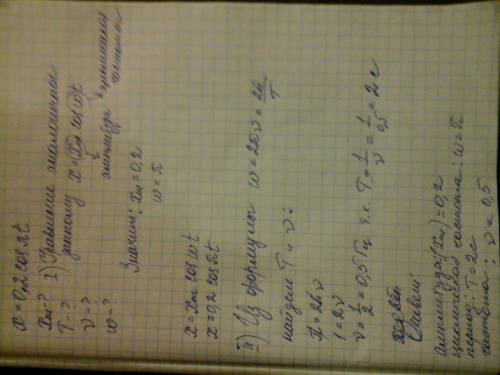 x = 0,2 cos πt
xm - ?
T - ?
ν - ?
ω - ?
1) Уравнение аналогичное
данному x = xm cos ωt
амплитуда
циклическая
частота
Значит: xm = 0,2
ω = π
x = xm cos ωt
x = 0,2 cos πt
ii) Из формулы ω = 2πν = 2π/T
найдем T и ν:
π = 2πν
1 = 2ν
ν = 1/2 = 0,5 Гц т.к. T = 1/ν = 1/0,5 = 2 с
Ответ:
амплитуда (xm) = 0,2
циклическая частота: ω = π
период: T = 2с
частота: ν = 0,5